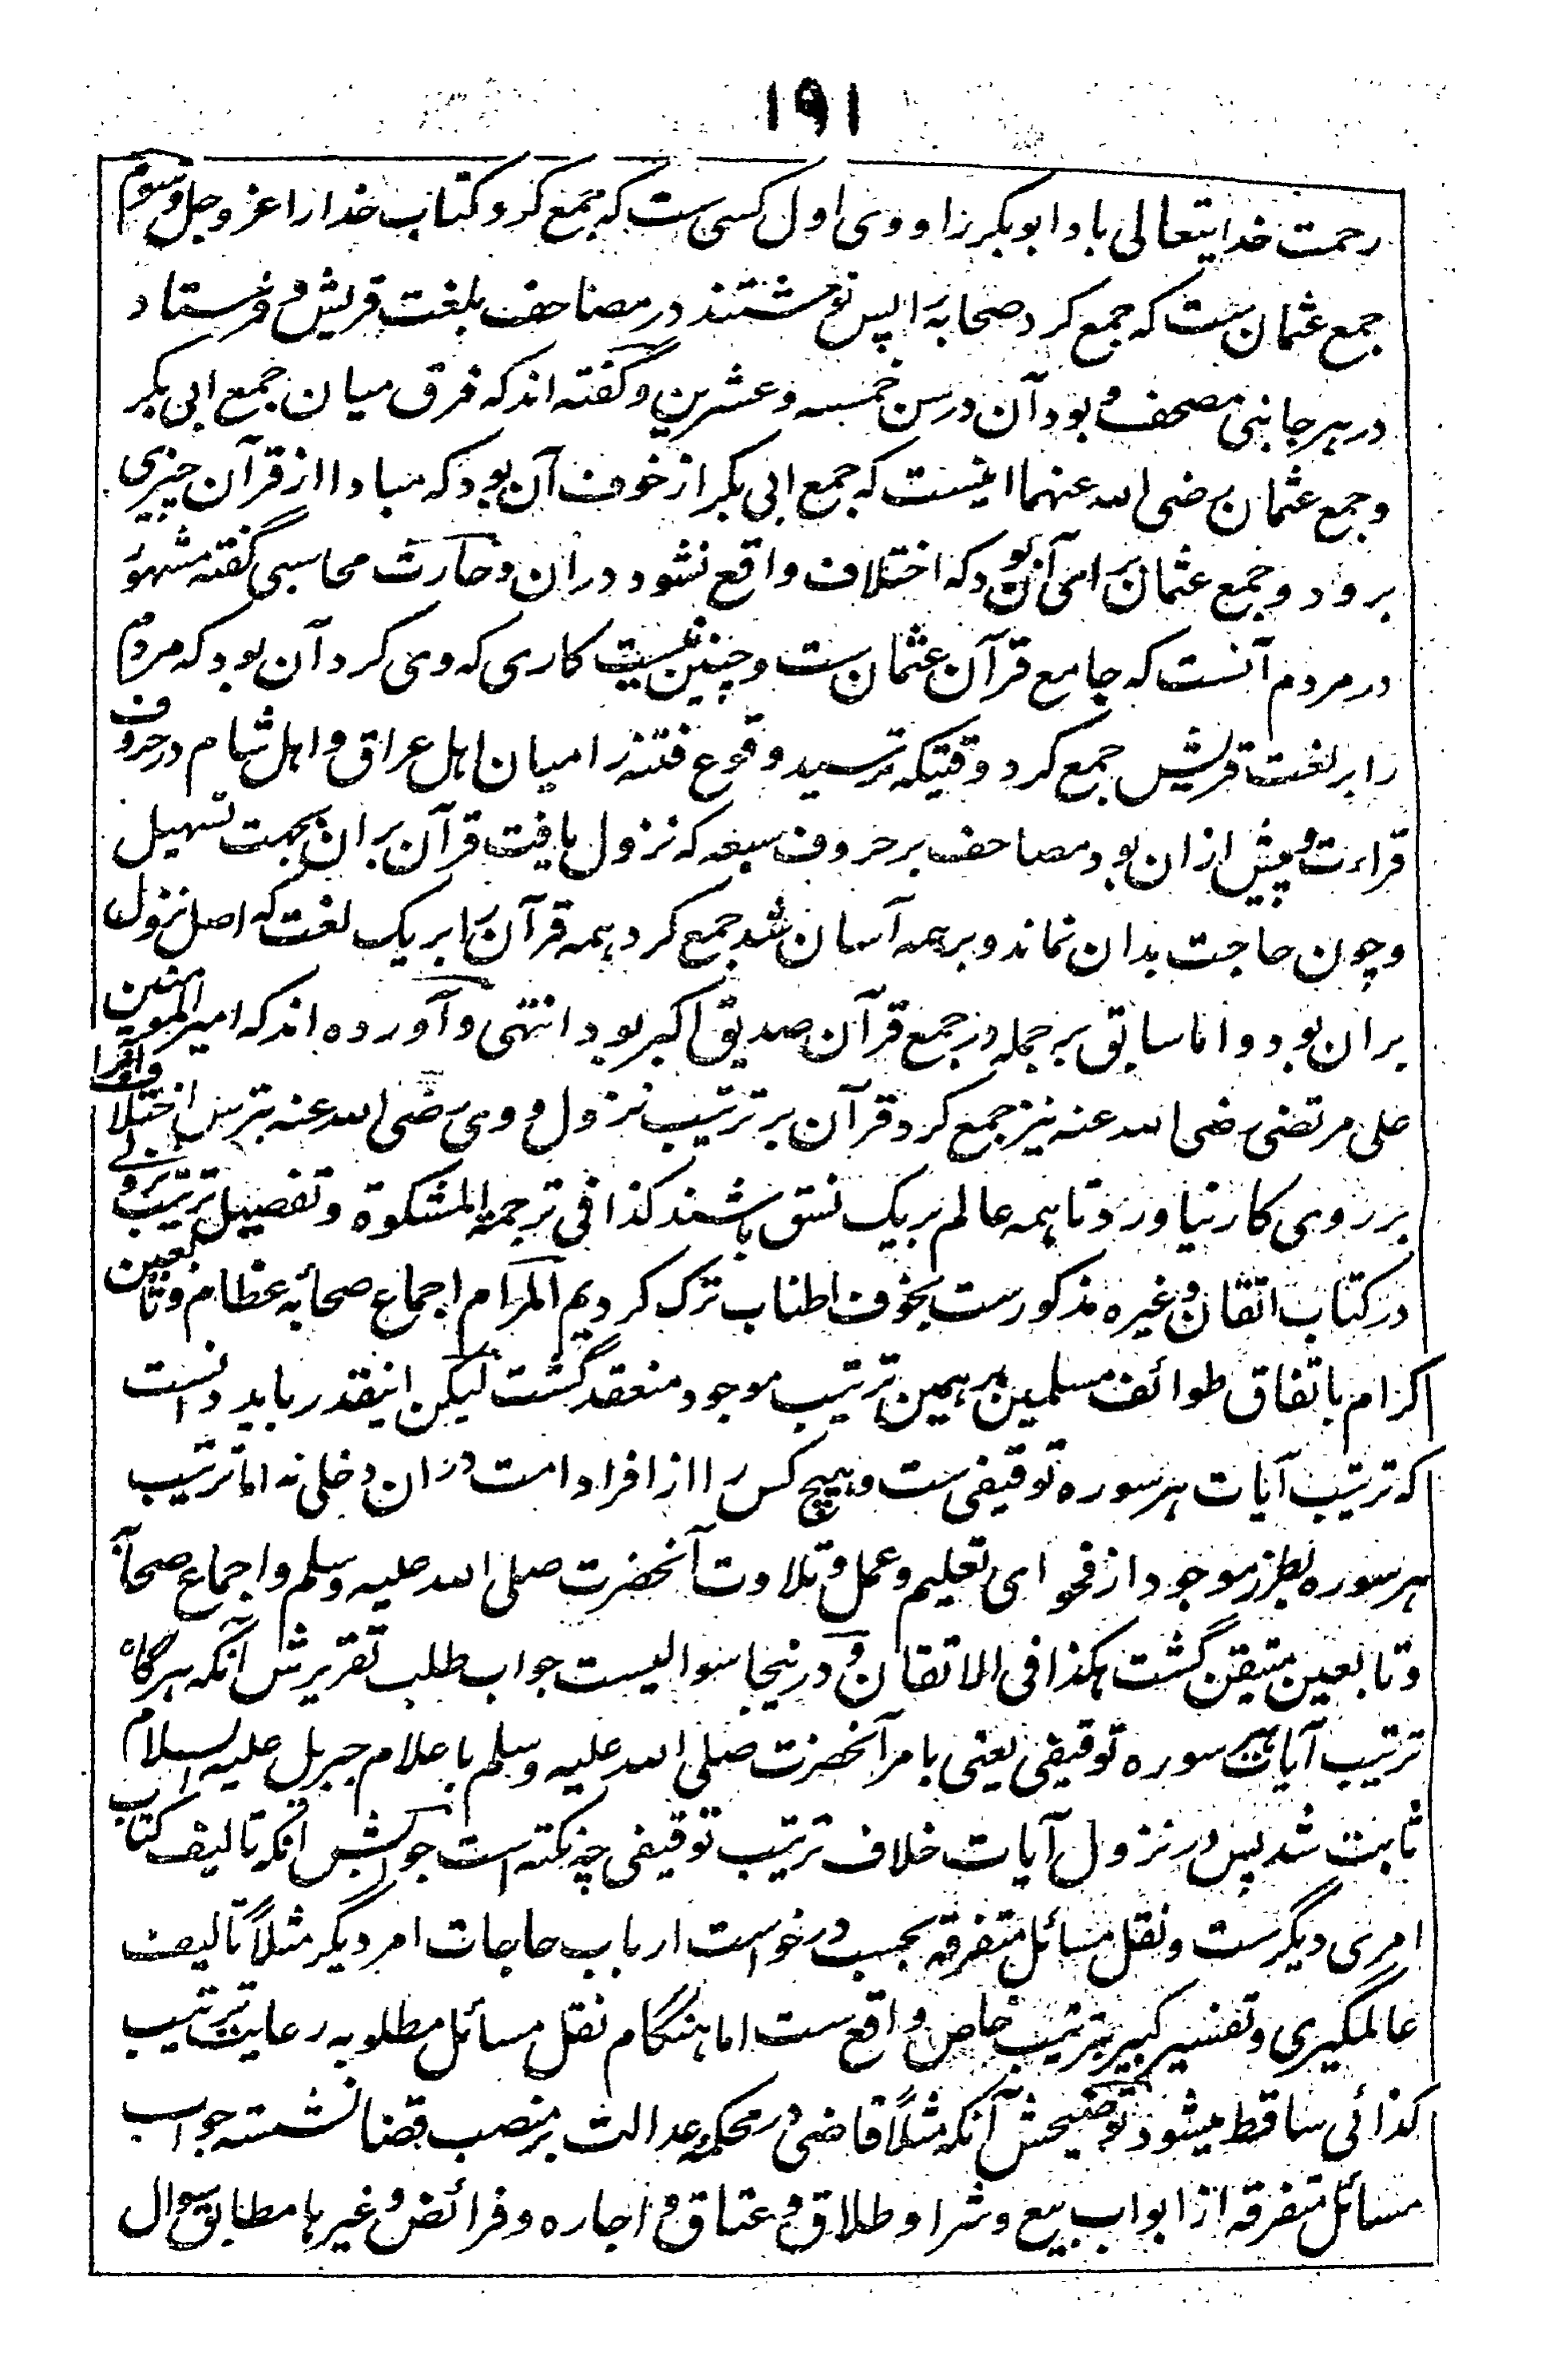 ۱۹۱
رحمت خدایتعالی باد ابوبکر را و وی اول کسی ست که جمع کرد کتاب خدا را عز و جل و سوم
جمع عثمان ست که جمع کرد صحابه را پس نوشتند در مصاحف بلغت قریش و فرستاد
در هر جانبی مصحف و بود آن در سن خمسه و عشرین و گفته اند که فرق میان جمع ابی بکر
و جمع عثمان رضی الله عنهما اینست که جمع ابی بکر از خوف آن بود که مبادا از قرآن چیزی
برود و جمع عثمان برای آن بود که اختلاف واقع نشود دران و حارث محاسبی گفته مشهور
در مردم آنست که جامع قرآن عثمان ست و چنین نیست کاری که وی کرد آن بود که مردم
را بر لغت قریش جمع کرد وقتیکه ترسید وقوع فتنه را میان اهل عراق و اهل شام در حروف
قراءت و پیش ازان بود مصاحف بر حروف سبعه که نزول یافت قرآن بران بجهت تسهیل
و چون حاجت بدان نماند و بر همه آسان شد جمع کرد همه قرآن را بر یک لغت که اصل نزول
بران بود و اما سابق بر جمله در جمع قرآن صدیق اکبر بود انتهی و آورده اند که امیر المومنین
علی مرتضی رضی الله عنه نیز جمع کرد قرآن بر ترتیب نزول و وی رضی الله عنه بترس اختلاف و افرا
بر روی کار نیاورد تا همه عالم بر یک نسق باشند کذا فی ترجمة المشکوة و تفصیل ترتیب نزولی
در کتاب اتقان و غیره مذکورست بخوف اطناب ترک کردیم المرام اجماع صحابه عظام و تابعین
اکرام باتفاق طوائف مسلمین بر همین ترتیب موجود منعقد گشت لیکن اینقدر باید دانست
که ترتیب آیات هر سوره توقیفی ست و هیچ کس را از افراد امت دران دخلی نه اما ترتیب
هر سوره بطرز موجود از فحوای تعلیم و عمل و تلاوت آنحضرت صلی الله علیه وسلم و اجماع صحابه
و تابعین متیقن گشت هکذا فی الاتقان و درینجا سوالیست جواب طلب تقریرش آنکه هرگاه
ترتیب آیات هر سوره توقیفی یعنی بامر آنحضرت صلی الله علیه وسلم باعلام جبریل علیه السلام
ثابت شد پس در نزول آیات خلاف ترتیب توقیفی چه نکته است جوابش آنکه تالیف کتاب
امری دیگرست و نقل مسائل متفرقه بحسب درخواست ارباب حاجات امر دیگر مثلاً تالیف
عالمگیری و تفسیر کبیر بترتیب خاص واقع ست اما هنگام نقل مسائل مطلوبه رعایت ترتیب
کذائی ساقط میشود توضیحش آنکه مثلاً قاضی در محکمه عدالت بر منصب قضا نشسته جواب
مسائل متفرقه از ابواب بیع و شرا و طلاق و عتاق و اجاره و فرائض و غیرها مطابق سوال